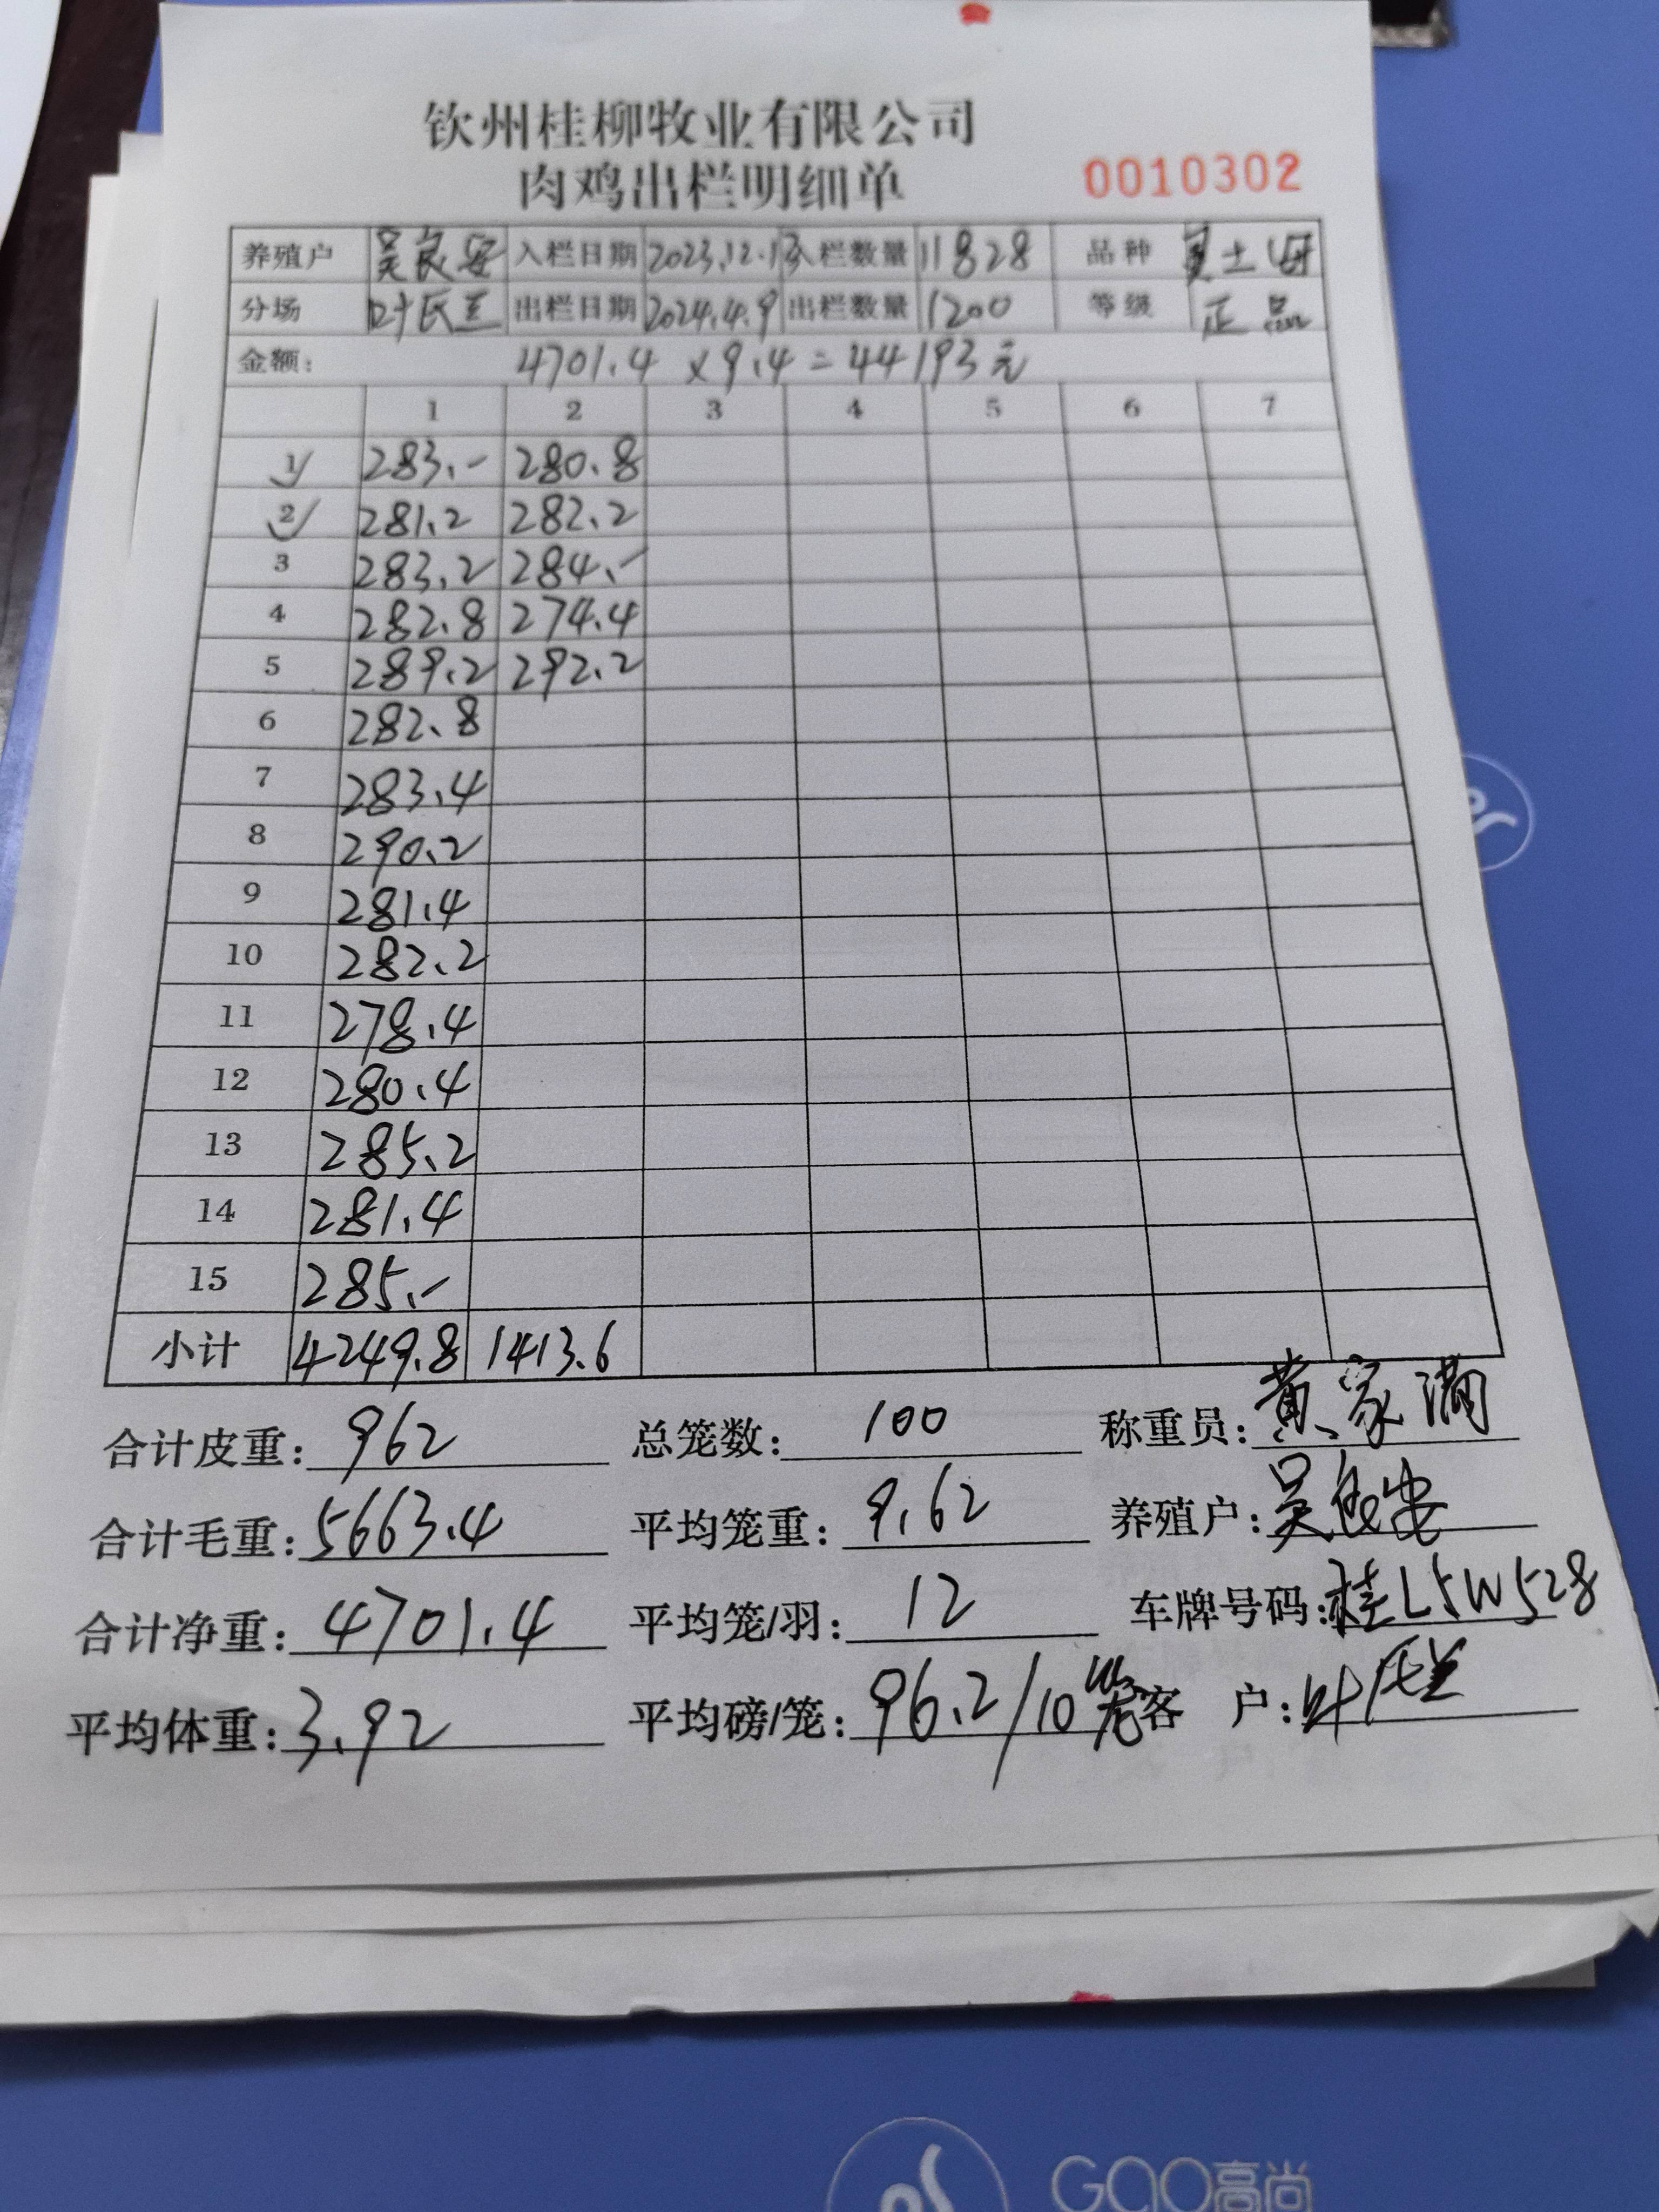 钦州桂柳牧业有限公司
肉鸡出栏明细单 0010302
养殖户 吴良安 入栏日期 2023.12.13 入栏数量 11828 品种 土
分场 叶氏兰 出栏日期 2024.4.9 出栏数量 1200 等级 正品
金额: 4701.4 ×9.4=44193元
1 2 3 4 5 6 7
1 283.- 280.8
2 281.2 282.2
3 283.2 284.-
4 282.8 274.4
5 289.2 292.2
6 282.8
7 283.4
8 290.2
9 281.4
10 282.2
11 278.4
12 280.4
13 285.2
14 281.4
15 285.-
小计 4249.8 1413.6
合计皮重: 962 总笼数: 100 称重员: 黄家满
合计毛重: 5663.4 平均笼重: 9.62 养殖户: 吴良安
合计净重: 4701.4 平均笼/羽: 12 车牌号码: 桂L5W528
平均体重: 3.92 平均磅/笼: 96.2/10笼 客户: 叶氏兰
GAO高尚